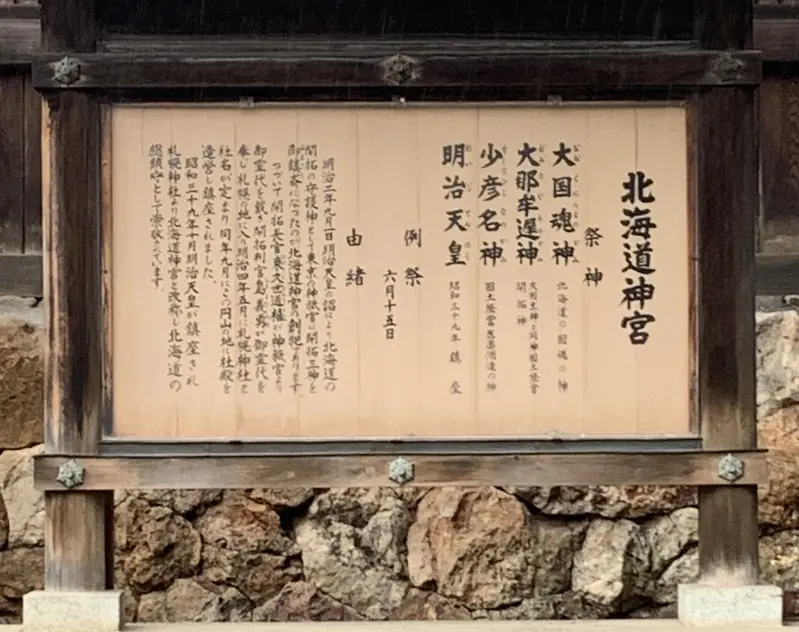 北海道神宮
祭神
大国魂神 北海道の国魂の神
大那牟遅神 大国主神と同神国土経営 開拓神
少彦名神 国土経営医薬酒造の神
明治天皇 昭和三十九年鎮座
例祭
六月十五日
由緒
明治二年九月一日明治天皇の詔により北海道の
開拓の守護神として東京の神祇官に開拓三神を
御鎮斎になったのが北海道神宮の創祀であります。
つづいて開拓長官東久世通禧が神祇官より
御霊代を戴き開拓判官島義勇が御霊代を
奉じ札幌の地に入り明治四年五月に札幌神社と
社名が定まり同年九月にこの円山の地に社殿を
造営し鎮座されました。
昭和三十九年十月明治天皇が鎮座され
札幌神社より北海道神宮と改称し北海道の
総鎮守として崇敬されています。